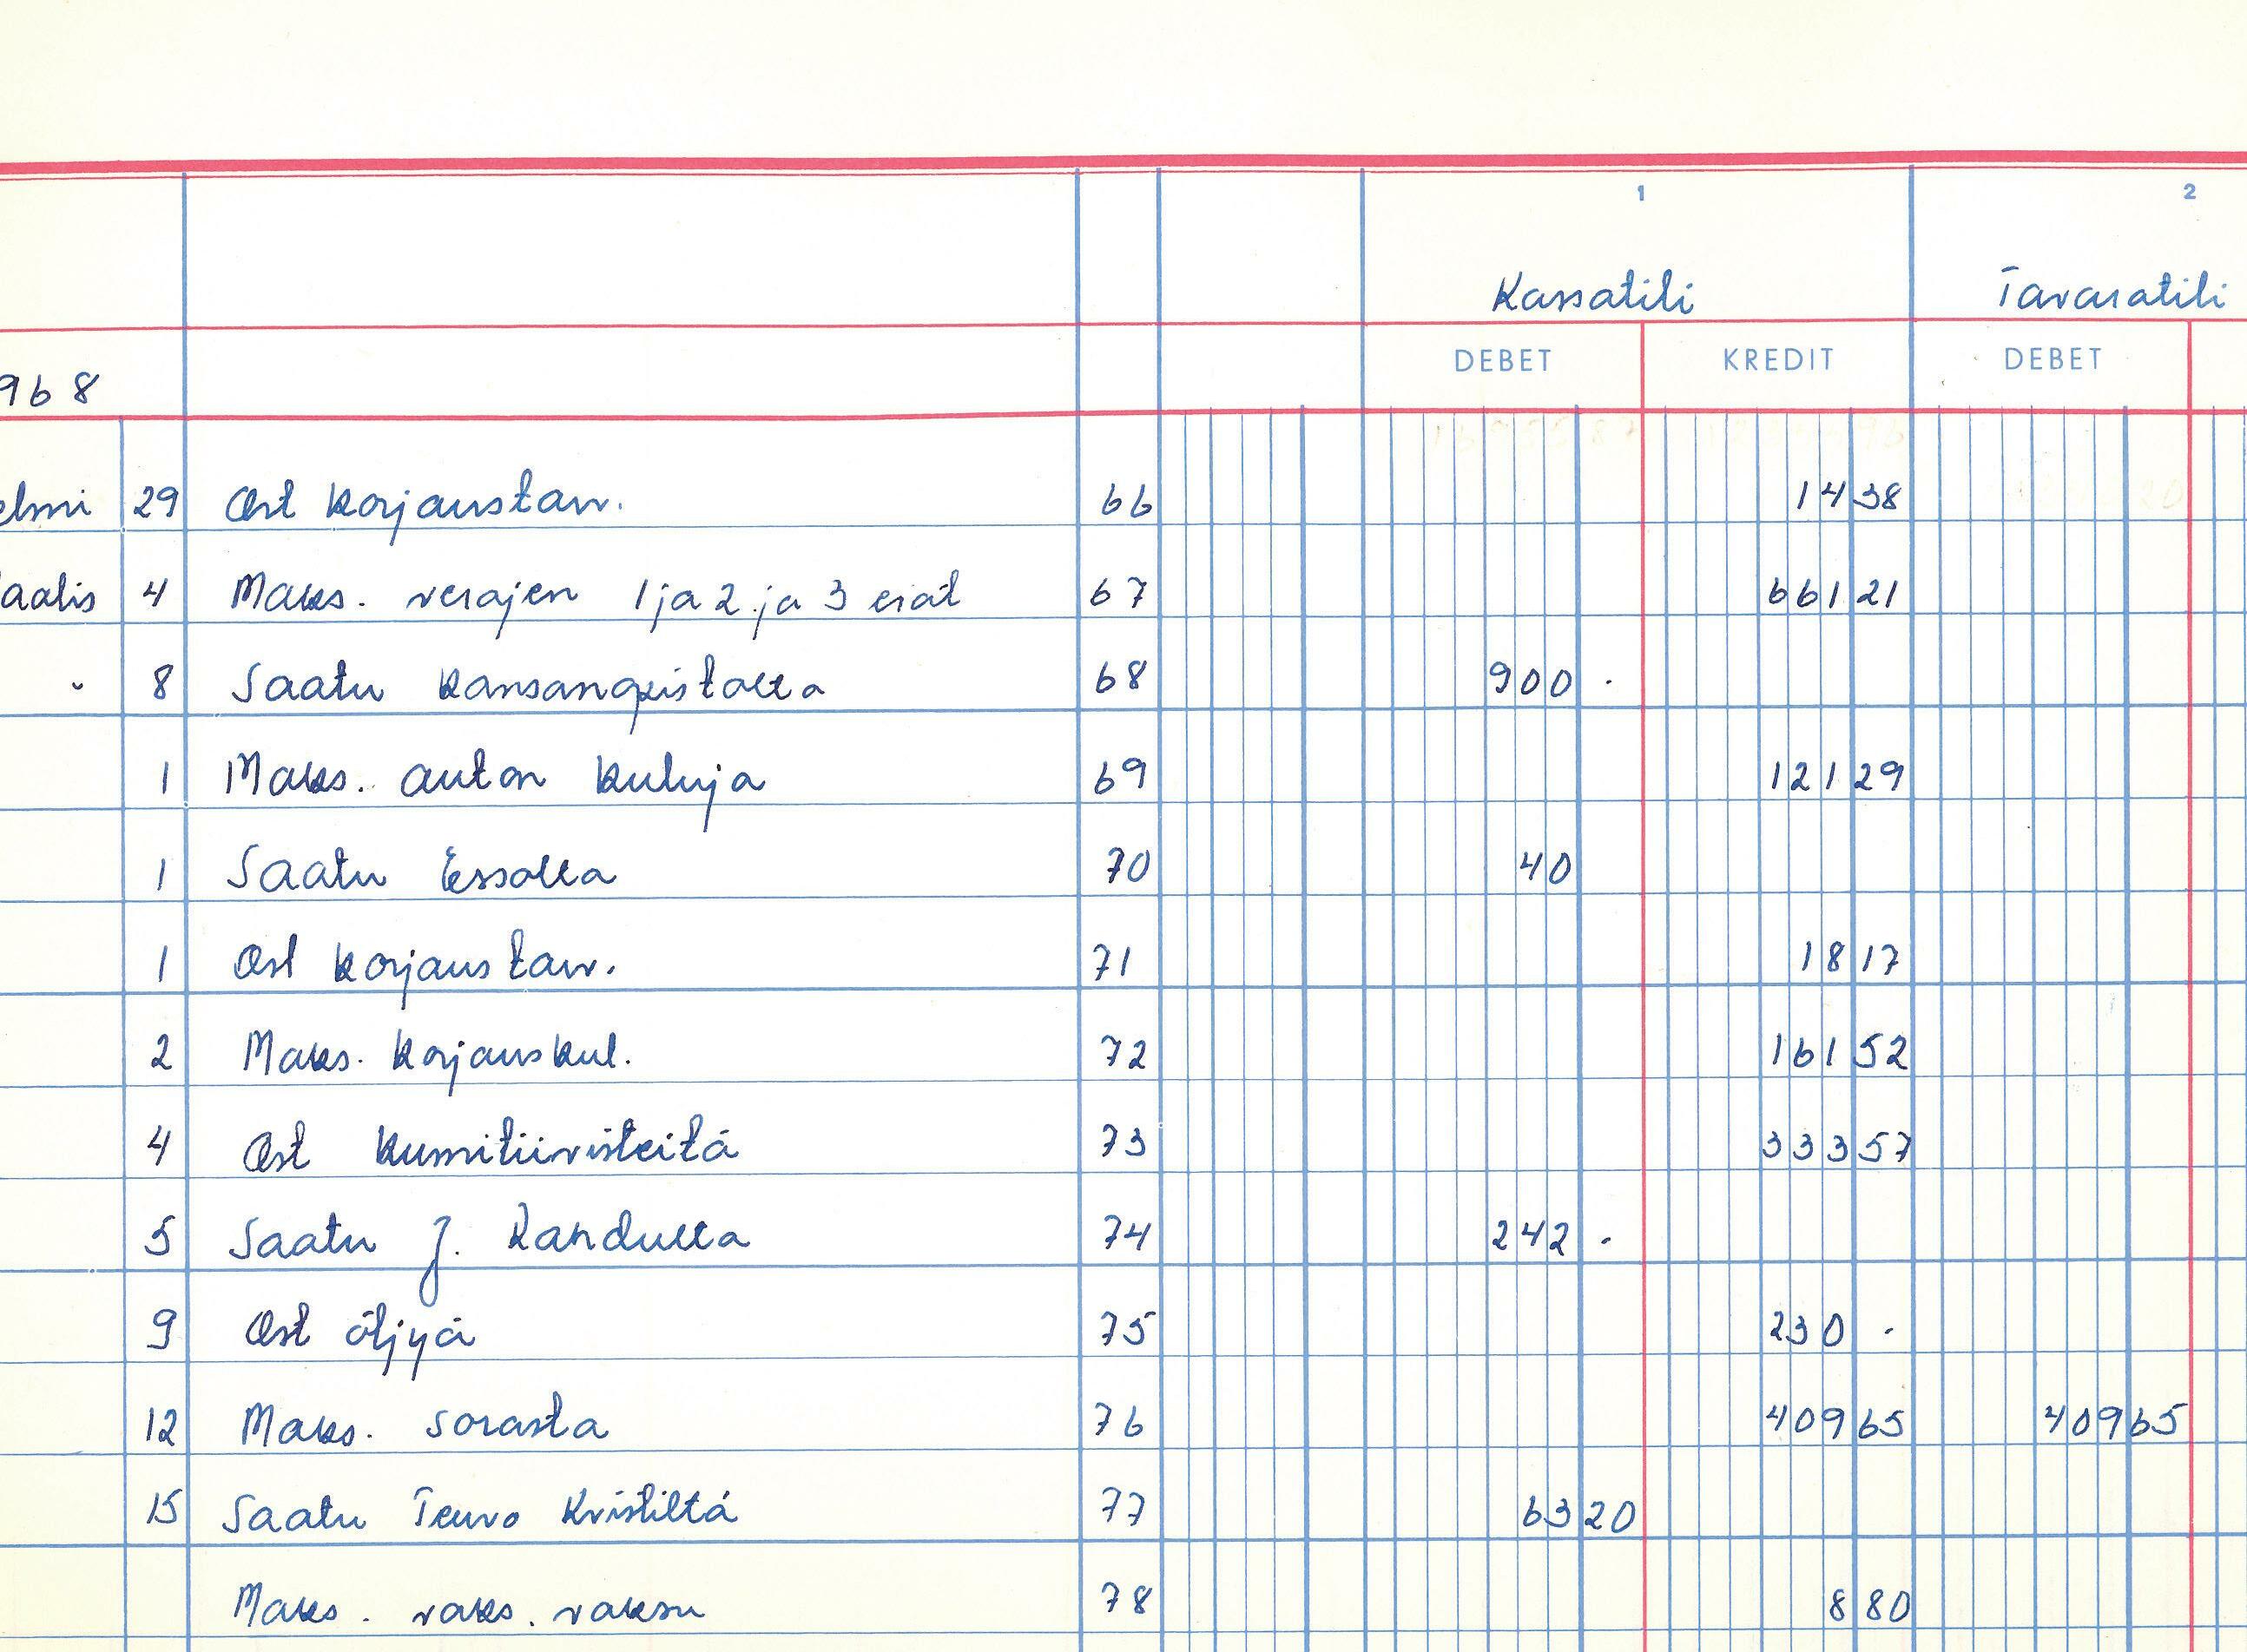 1 2
Kassatili Tavaratili
DEBET KREDIT DEBET
968
elmi 29 Ost korjaustarv. 66 14 38
aalis 4 Maks. verojen 1 ja 2 ja 3 erät 67 661 21
" 8 Saatu Kansanopistolta 68 900 -
1 Maks. auton kuluja 69 121 29
1 Saatu Essolta 70 40
1 Ost korjaustarv. 71 18 17
2 Maks. korjauskul. 72 161 52
4 Ost kumitiivisteitä 73 333 57
5 Saatu J. 74 242 -
9 Ost öljyä 75 230 -
12 Maks. sorasta 76 409 65 409 65
15 Saatu Teuvo Kristiltä 77 63 20
Maks. raks. 78 8 80